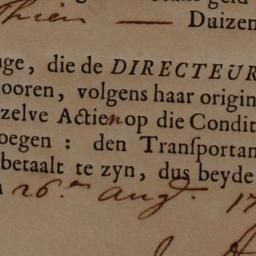 hien — Duizen
ge, die de DIRECTEUR
ooren, volgens haar origin
zelve Actien op die Condit
oegen : den Tranſportan
betaalt te zyn, dus beyde
26.en aug.t 17